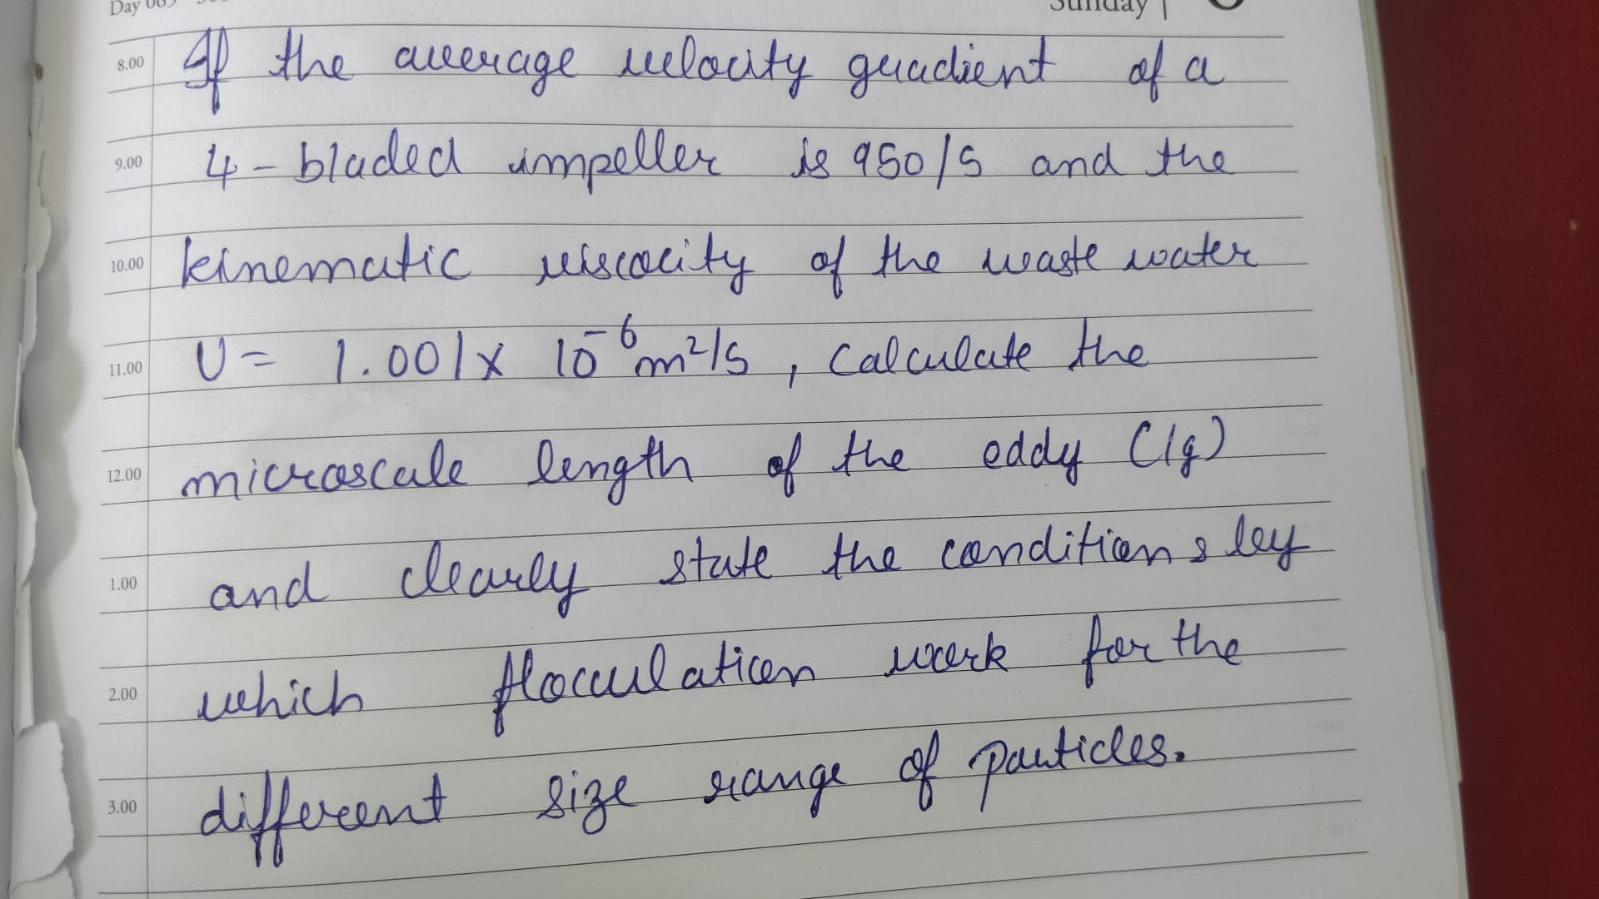 Sunday
8.00 If the average velocity gradient of a
9.00 4-bladed impeller is 950/s and the
10.00 kinematic viscocity of the waste water
11.00 υ = 1.001 x 10⁻⁶ m²/s, calculate the
12.00 microscale length of the eddy (lg)
1.00 and clearly state the conditions by
2.00 which flocculation work for the
3.00 different size range of particles.